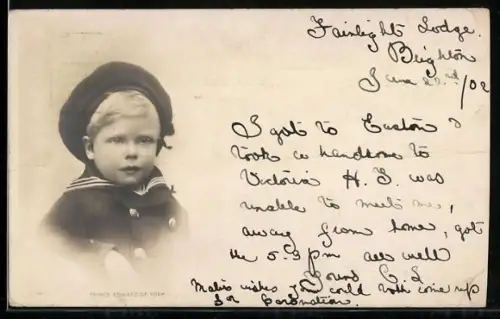 Fairlight Lodge.
Brighton
Jan 22nd/02
I got to Euston &
took a handsome to
Victoria H. S. was
unable to meet me,
away from home, got
the 5-5 pm all well
Yours C. L.
wishes you could both come up
for Coronation.
PRINCE EDWARD OF YORK